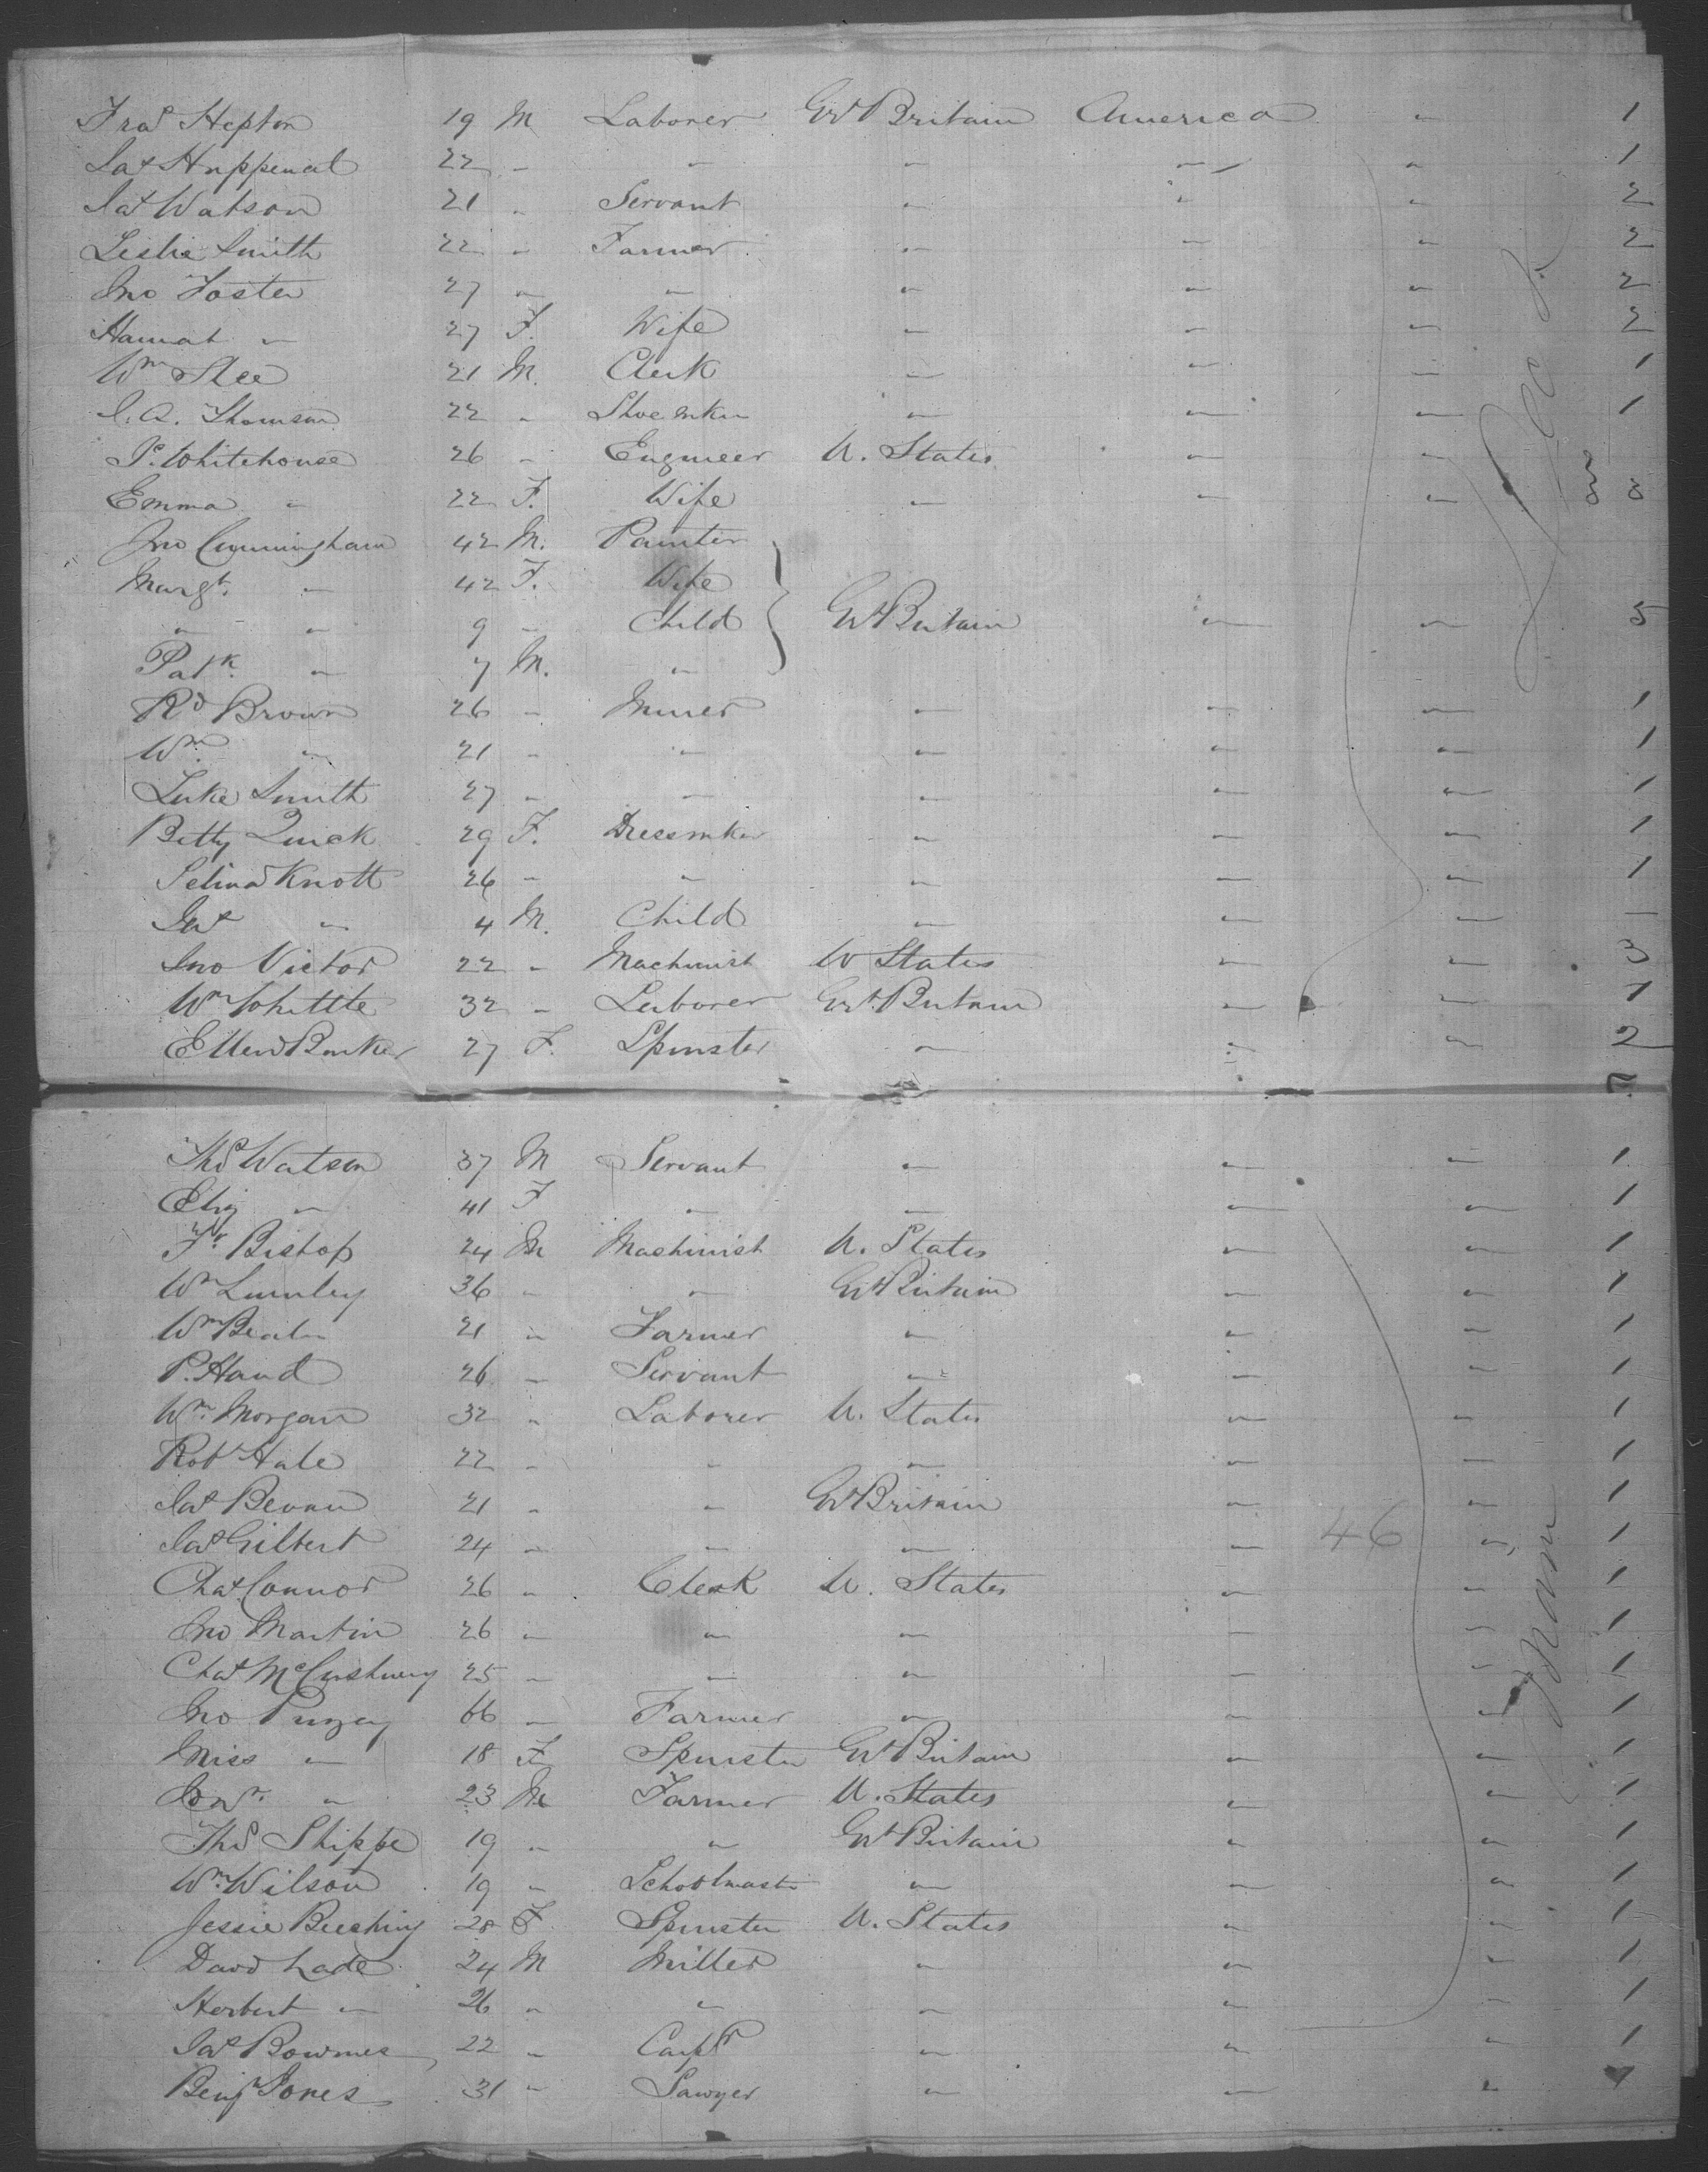 Fras Hepton 19 M Laborer Gt Britain America " 1
Jas Huppenal 22 " " " " " 1
Jas Watson 21 " Servant " " " 2
Leslie Smith 22 " Farmer " " " 2
Jno Foster 27 " " " " " 2
Hannah " 27 F. Wife " " " 2
Wm Slee 21 M. Clerk " " " 1
J. A. Thomson 22 " Shoemkr " " " 1
P. Whitehouse 26 " Engineer U. States " " 3
Emma " 22 F. Wife " " " 3
Jno Cunningham 42 M. Painter
Margt. " 42 F. Wife
" " 9 " Child Gt Britain " " 5
Patk. " 7 M. "
Rd Brown 26 " Miner " " " 1
Wm. " 21 " " " " " 1
Luke Smith 27 " " " " " 1
Betty Quick 29 F. Dressmkr " " " 1
Selina Knott 26 " " " " " 1
Jas " 4 M. Child " " " –
Jno Victor 22 " Machinist U States " " 3
Wm Whittle 32 " Laborer Gt. Britain " " 1
Ellen Barker 27 F. Spinster " " " 2
Thos Watson 37 M Servant " " " 1
Eliz " 41 F " " " " 1
Fk. Bishop 24 M Machinist U. States " " 1
Wm Lumley 36 " " Gt Britain " " 1
Wm 21 " Farmer " " " 1
P. Hand 26 " Servant " " " 1
Wm. Morgan 32 " Laborer U. States " " 1
Robt Hale 22 " " " " " 1
Jas Bevan 21 " " Gt Britain " " 1
Jas Gilbert 24 " " " " 46 " 1
Chas Connor 26 " Clerk U. States " " 1
Jno Martin 26 " " " " " 1
Chas 25 " " " " " 1
Jno 66 " Farmer " " " 1
Miss " 18 F Spinster Gt Britain " " 1
" 23 M Farmer U. States " " 1
Thos Shippe 19 " " Gt Britain " " 1
Wm. Wilson 19 " Schoolmastr " " " 1
Jessie 28 F Spinster U. States " " 1
David Lade 24 M Miller " " " 1
Herbert " 26 " " " " " 1
Jas Bowmes 22 " Carpr " " " 1
Benjn Jones 31 " Sawyer " " " 1